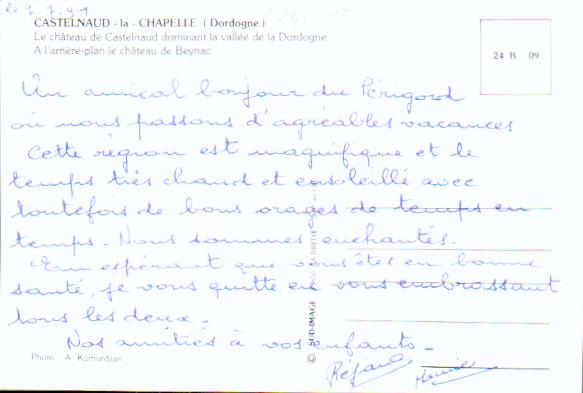 le 7.7.91
CASTELNAUD - la - CHAPELLE ( Dordogne )
Le château de Castelnaud dominant la vallée de la Dordogne
A l'arrière-plan le château de Beynac
24 B 09
Un amical bonjour du Périgord
où nous passons d'agréables vacances
Cette région est magnifique et le
temps très chaud et ensoleillé avec
toutefois de bons orages de temps en
temps. Nous sommes enchantés.
En espérant que vous êtes en bonne
santé, je vous quitte en vous embrassant
tous les deux.
Nos amitiés à vos enfants.
Photo A. Kumurdjian
© SUD-IMAGE LA BREDE
Réjane